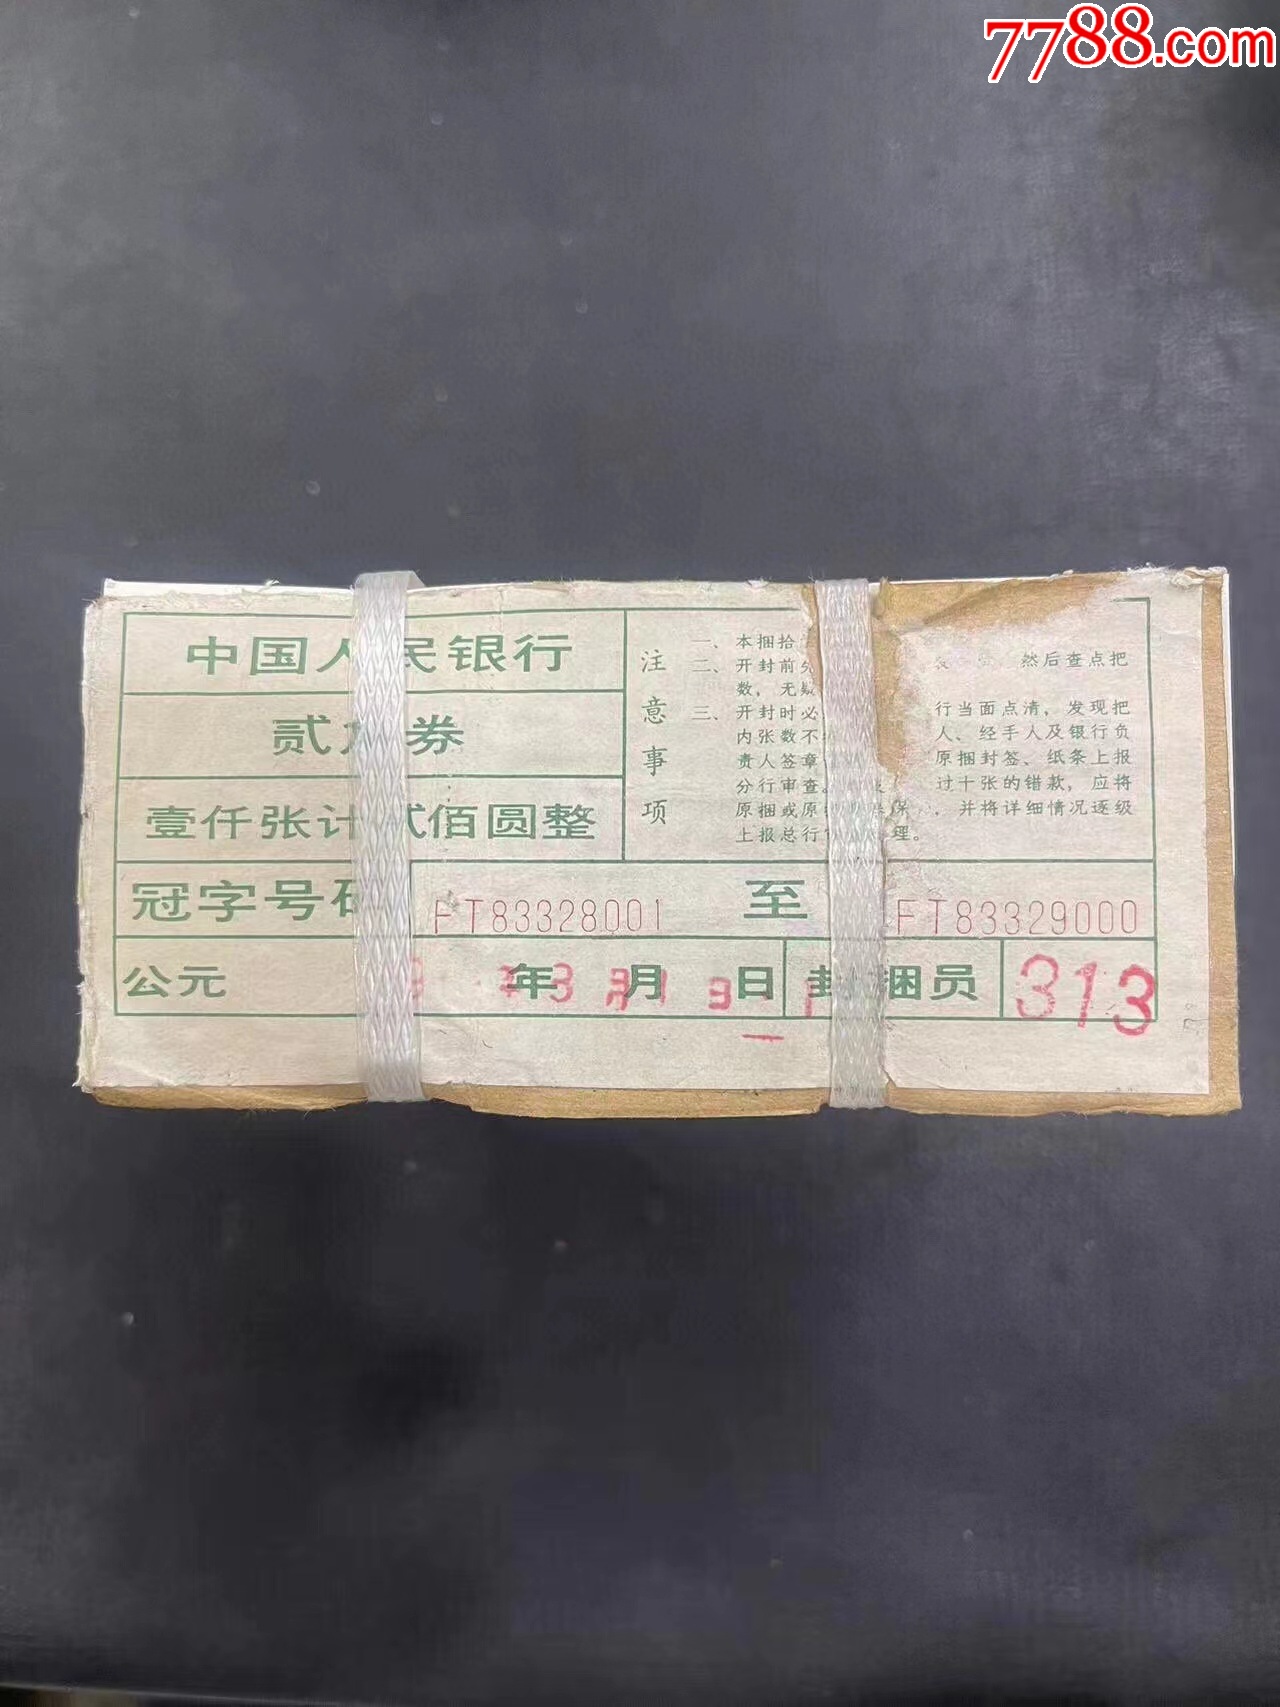 7788.com
中国人民银行
贰角券
壹仟张计贰佰圆整
注意事项
一、本捆拾
二、开封前 然后查点把
数，无疑
三、开封时必 行当面点清，发现把
内张数不 人、经手人及银行负
责人签章 原捆封签、纸条上报
分行审查。 过十张的错款，应将
原捆或原 保 ，并将详细情况逐级
上报总行 理。
冠字号码 FT83328001 至 FT83329000
公元 年 月 日 封捆员 313